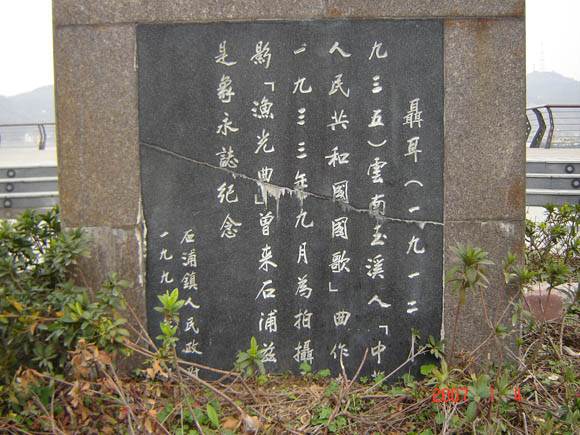 聶耳（一九一二
九三五）雲南玉溪人「中
人民共和國國歌」曲作
一九三三年九月為拍攝
影「漁光曲」曾来石浦兹
是象永誌纪念
石浦鎮人民政
一九九
2007 1 4